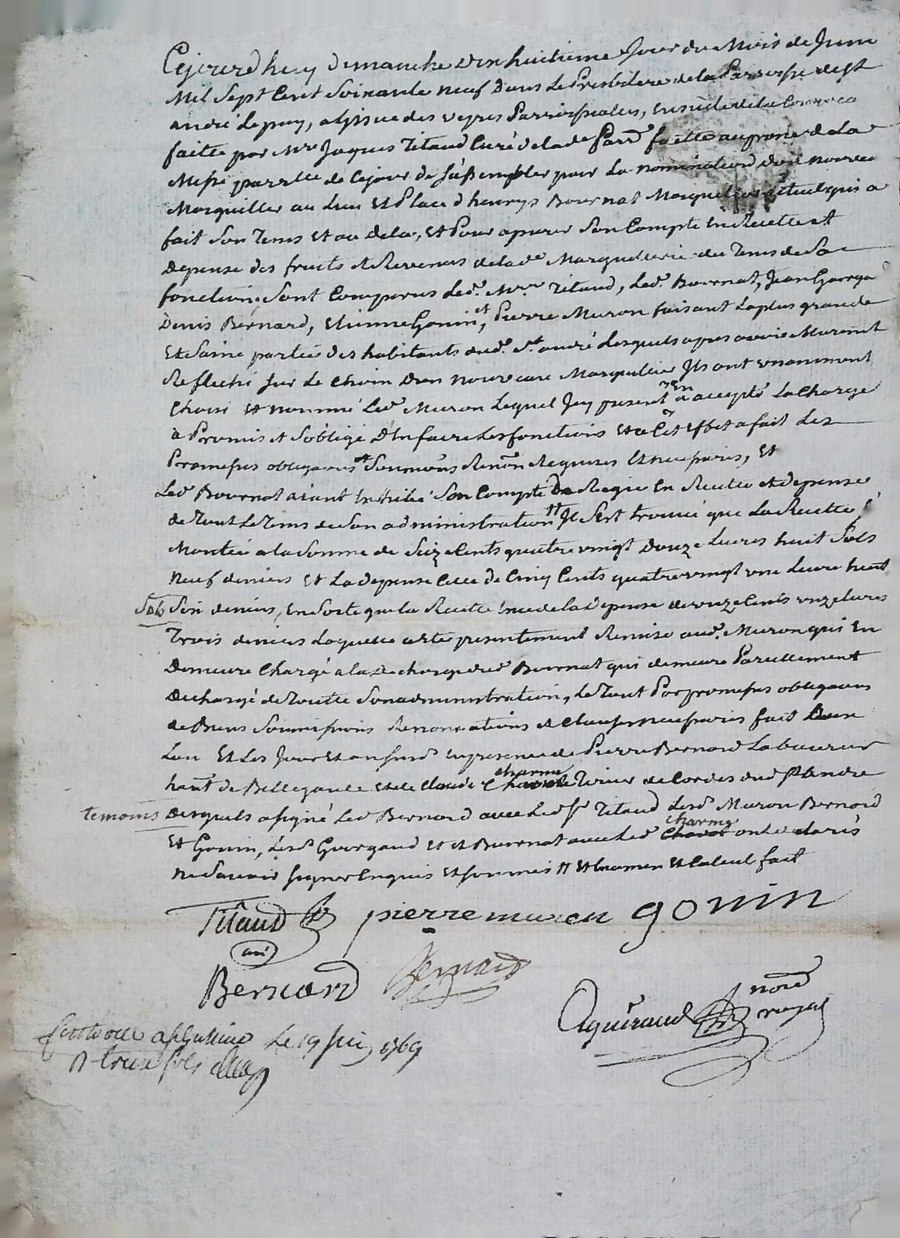 Cejourdhuy dimanche dixhuitieme jour du Mois de Juin
Mil Sept Cent Soixante neuf Dans le Presbitere de la Paroisse de St
andré Lepuy, a Lissue des vepres Paroissiales, en suite de la Convoca
faitte par Mre Jaques Titaud Curé de lade Parse faitte au prone de la
Messe parrlle de Cejour de Sassembler pour La nomination dun nouveau
Marquiller au Lieu Et Place dhenrys Bournat Marquiller actuel qui a
fait Son Tems Et au dela, Et Pour apurer Son Compte En Recette Et
Depense des fruits Et Revenus de lade Marguellerie du Tems de Sa
fonction, Sont Comparus Led. Mre Titaud, Led. Bournat, Jean Gurga
Denis Bernard, Etienne Gonin, et Pierre Muron faisant La plus grande
Et Saine partie des habitants dud. St andré Lesquels apres avoir Murement
Reflechi Sur Le Choix Dun nouveau Marquiller Ils ont unanimement
Choisi Et nommé Led. Muron Lequel Icy present en a accepté La Charge
a Promis Et Sobligé D'En faire Les fonctions Et a Cet Effet a fait Les
Promesses obligaons Soumons Renons Requises Et necessaires, Et
Led. Bournat aiant Exhibé Son Compte De Regie En Recette Et depense
de Tout Le Tems de Son administration # Il S'est trouvé que La Recette
Montée a la Somme de Seize Cents quatre vingt Douze Livres huit Sols
neuf deniers Et La depense Celle de Cinq Cents quatre vingt une Livre huit
Sols Six deniers, En Sorte que la Recette Excede la Depense de onze Cents onze livres
Trois deniers Laquelle a Eté presentement Remise aud. Muron qui En
Demeure Chargé a la decharge dud. Bournat qui demeure Pareillement
Dechargé de Toutte Son administration, Le Tout Par promesses obligaons
de Biens Soumissions Renonciations Et Clauses necessaires fait Dans
Lieu Et Les Jour Et an susd. En presence de Pierre Bernard Laboureur
hant de Bellegarde Et de Claude charme Tixier de Cordes dud St Andre
temoins Desquels a signé Led. Bernard avec Led. Sr Titaud Lesd. Muron Bernard
Et Gonin, Lesd. Gurgaud Et Bournat avec Led. charme ont declaré
ne Savoir Signer Enquis Et sommés # Et Examen Et Calcul fait
Titaud
pierre muron gonin
curé
Bernard Bernard
Aguiraud
nore
royal
Controllé
Le 19 juin 1769
R treize sols